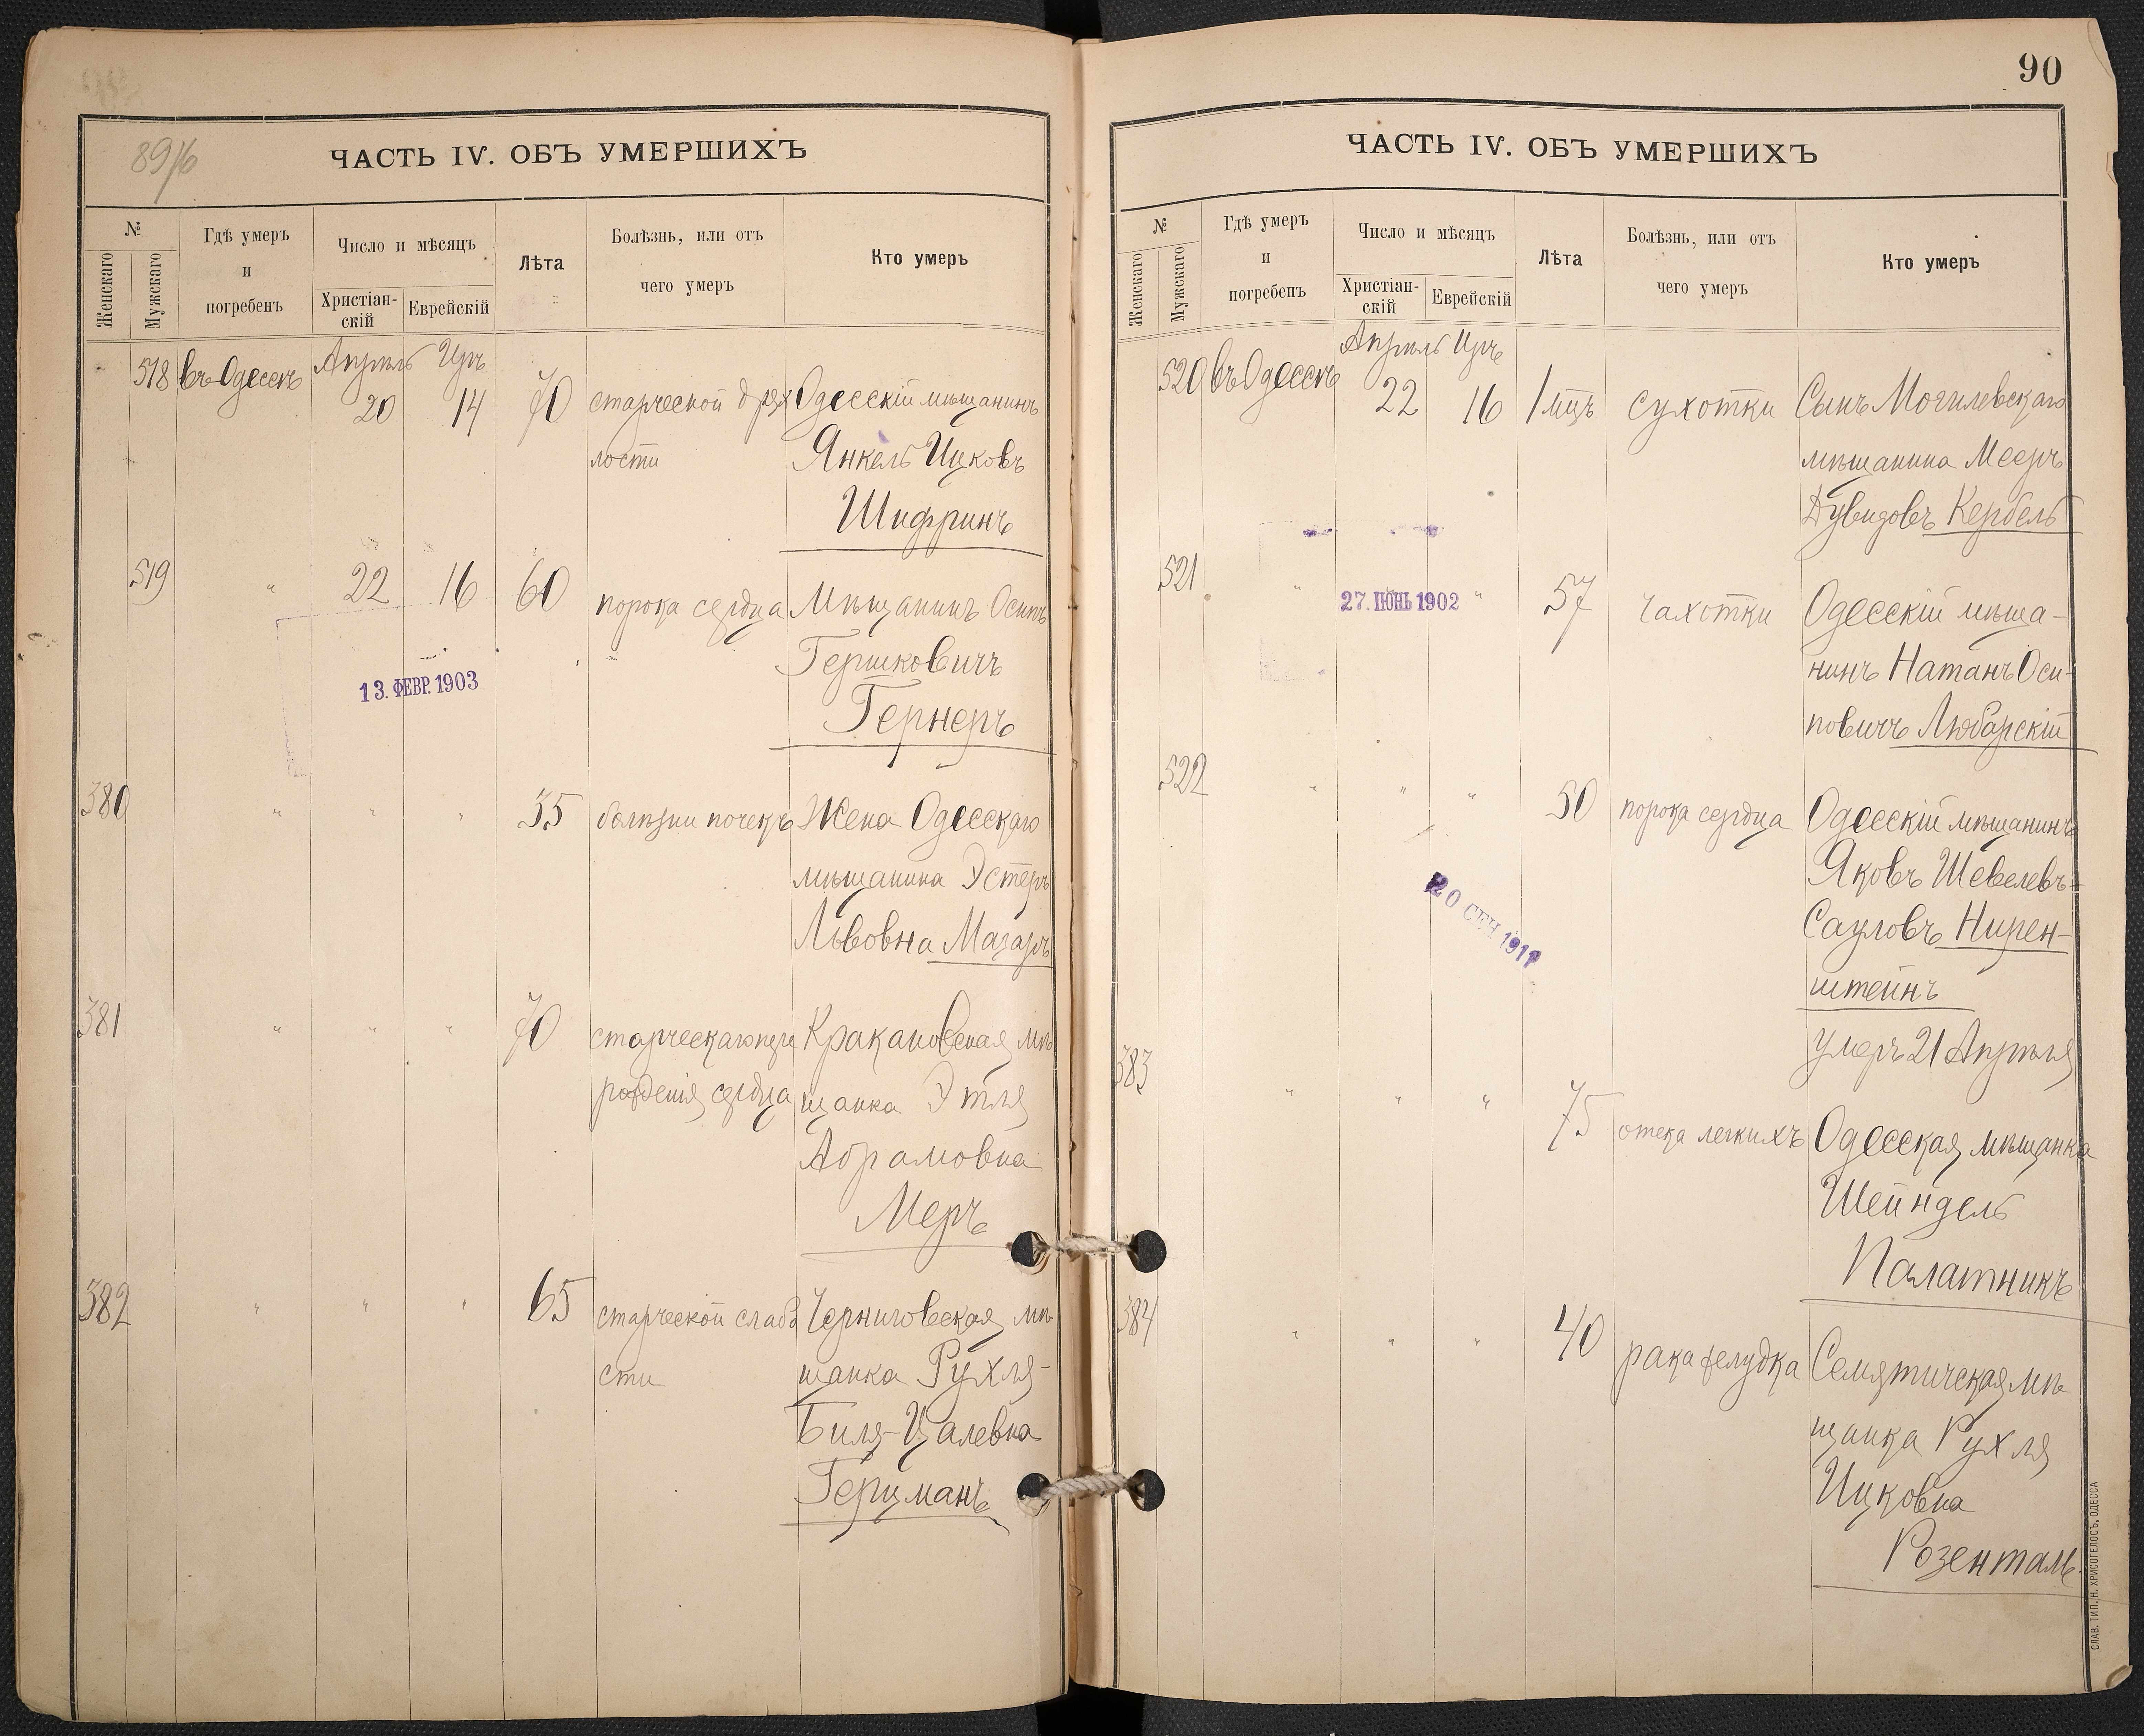 89/б
ЧАСТЬ IV. ОБЪ УМЕРШИХЪ
№
Женскаго
Мужскаго
Гдѣ умеръ
и
погребенъ
Число и мѣсяцъ
Христіан-
скій
Еврейскій
Лѣта
Болѣзнь, или отъ
чего умеръ
Кто умеръ
Апрѣль Иръ
518 въ Одессѣ 20 14 70 старческой дрях Одесскій мѣщанинъ
лости Янкель Ицковъ
Шифринъ
519 " 22 16 60 порока сердца Мѣщанинъ Осипъ
Гершковичъ
13. ФЕВР. 1903
Гернеръ
380 " " " 35 болѣзни почекъ Жена Одесскаго
мѣщанина Эстеръ
Львовна Мазаръ
381 " " " 70 старческаго пере Кракановская мѣ
рожденія сердца щанка Этля
Абрамовна
Меръ
382 " " " 65 старческой слабо Черниговская мѣ-
сти щанка Рухля-
Биля-Цалевна
Герцманъ
90
ЧАСТЬ IV. ОБЪ УМЕРШИХЪ
№
Женскаго
Мужскаго
Гдѣ умеръ
и
погребенъ
Число и мѣсяцъ
Христіан-
скій
Еврейскій
Лѣта
Болѣзнь, или отъ
чего умеръ
Кто умеръ
Апрѣль Иръ
520 въ Одессѣ 22 16 1 мцъ сухотки Сынъ Могилевскаго
мѣщанина Мееръ
Дувидовъ Кербель
521 " 27. ІЮНЬ 1902 " 57 чахотки Одесскій мѣща-
нинъ Натанъ Оси-
повичъ Любарскій
522 " " " 50 порока сердца Одесскій мѣщанинъ
Яковъ Шевелевъ-
20 СЕН 1911
Сауловъ Нирен-
штейнъ
умеръ 21 Апрѣля
383 " " " 75 отека легкихъ Одесская мѣщанка
Шейндель
Палатникъ
384 " " " 40 рака желудка Семятичская мѣ-
щанка Рухля
Ицковна
Розенталь
СЛАВ. ТИП. Н. ХРИСОГЕЛОСЪ, ОДЕССА